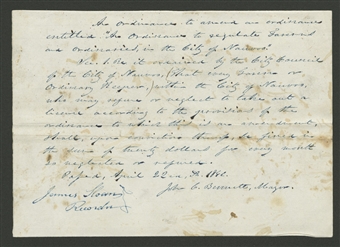 An Ordinance to amend an ordinance
entitled "An Ordinance to regulate Taverns
and Ordinaries, in the City of Nauvoo."
Sec. 1. Be it ordained by the City Council
of the City of Nauvoo, That any Tavern or
Ordinary Keeper, within the City of Nauvoo,
who may refuse or neglect to take out a
license according to the provisions of the
ordinance to which this is an amendment,
shall, upon conviction thereof, be fined in
the sum of twenty dollars for every month
so neglected or refused.
Passed, April 22nd, 1842.
James Sloan
Recorder
John C. Bennett, Mayor.